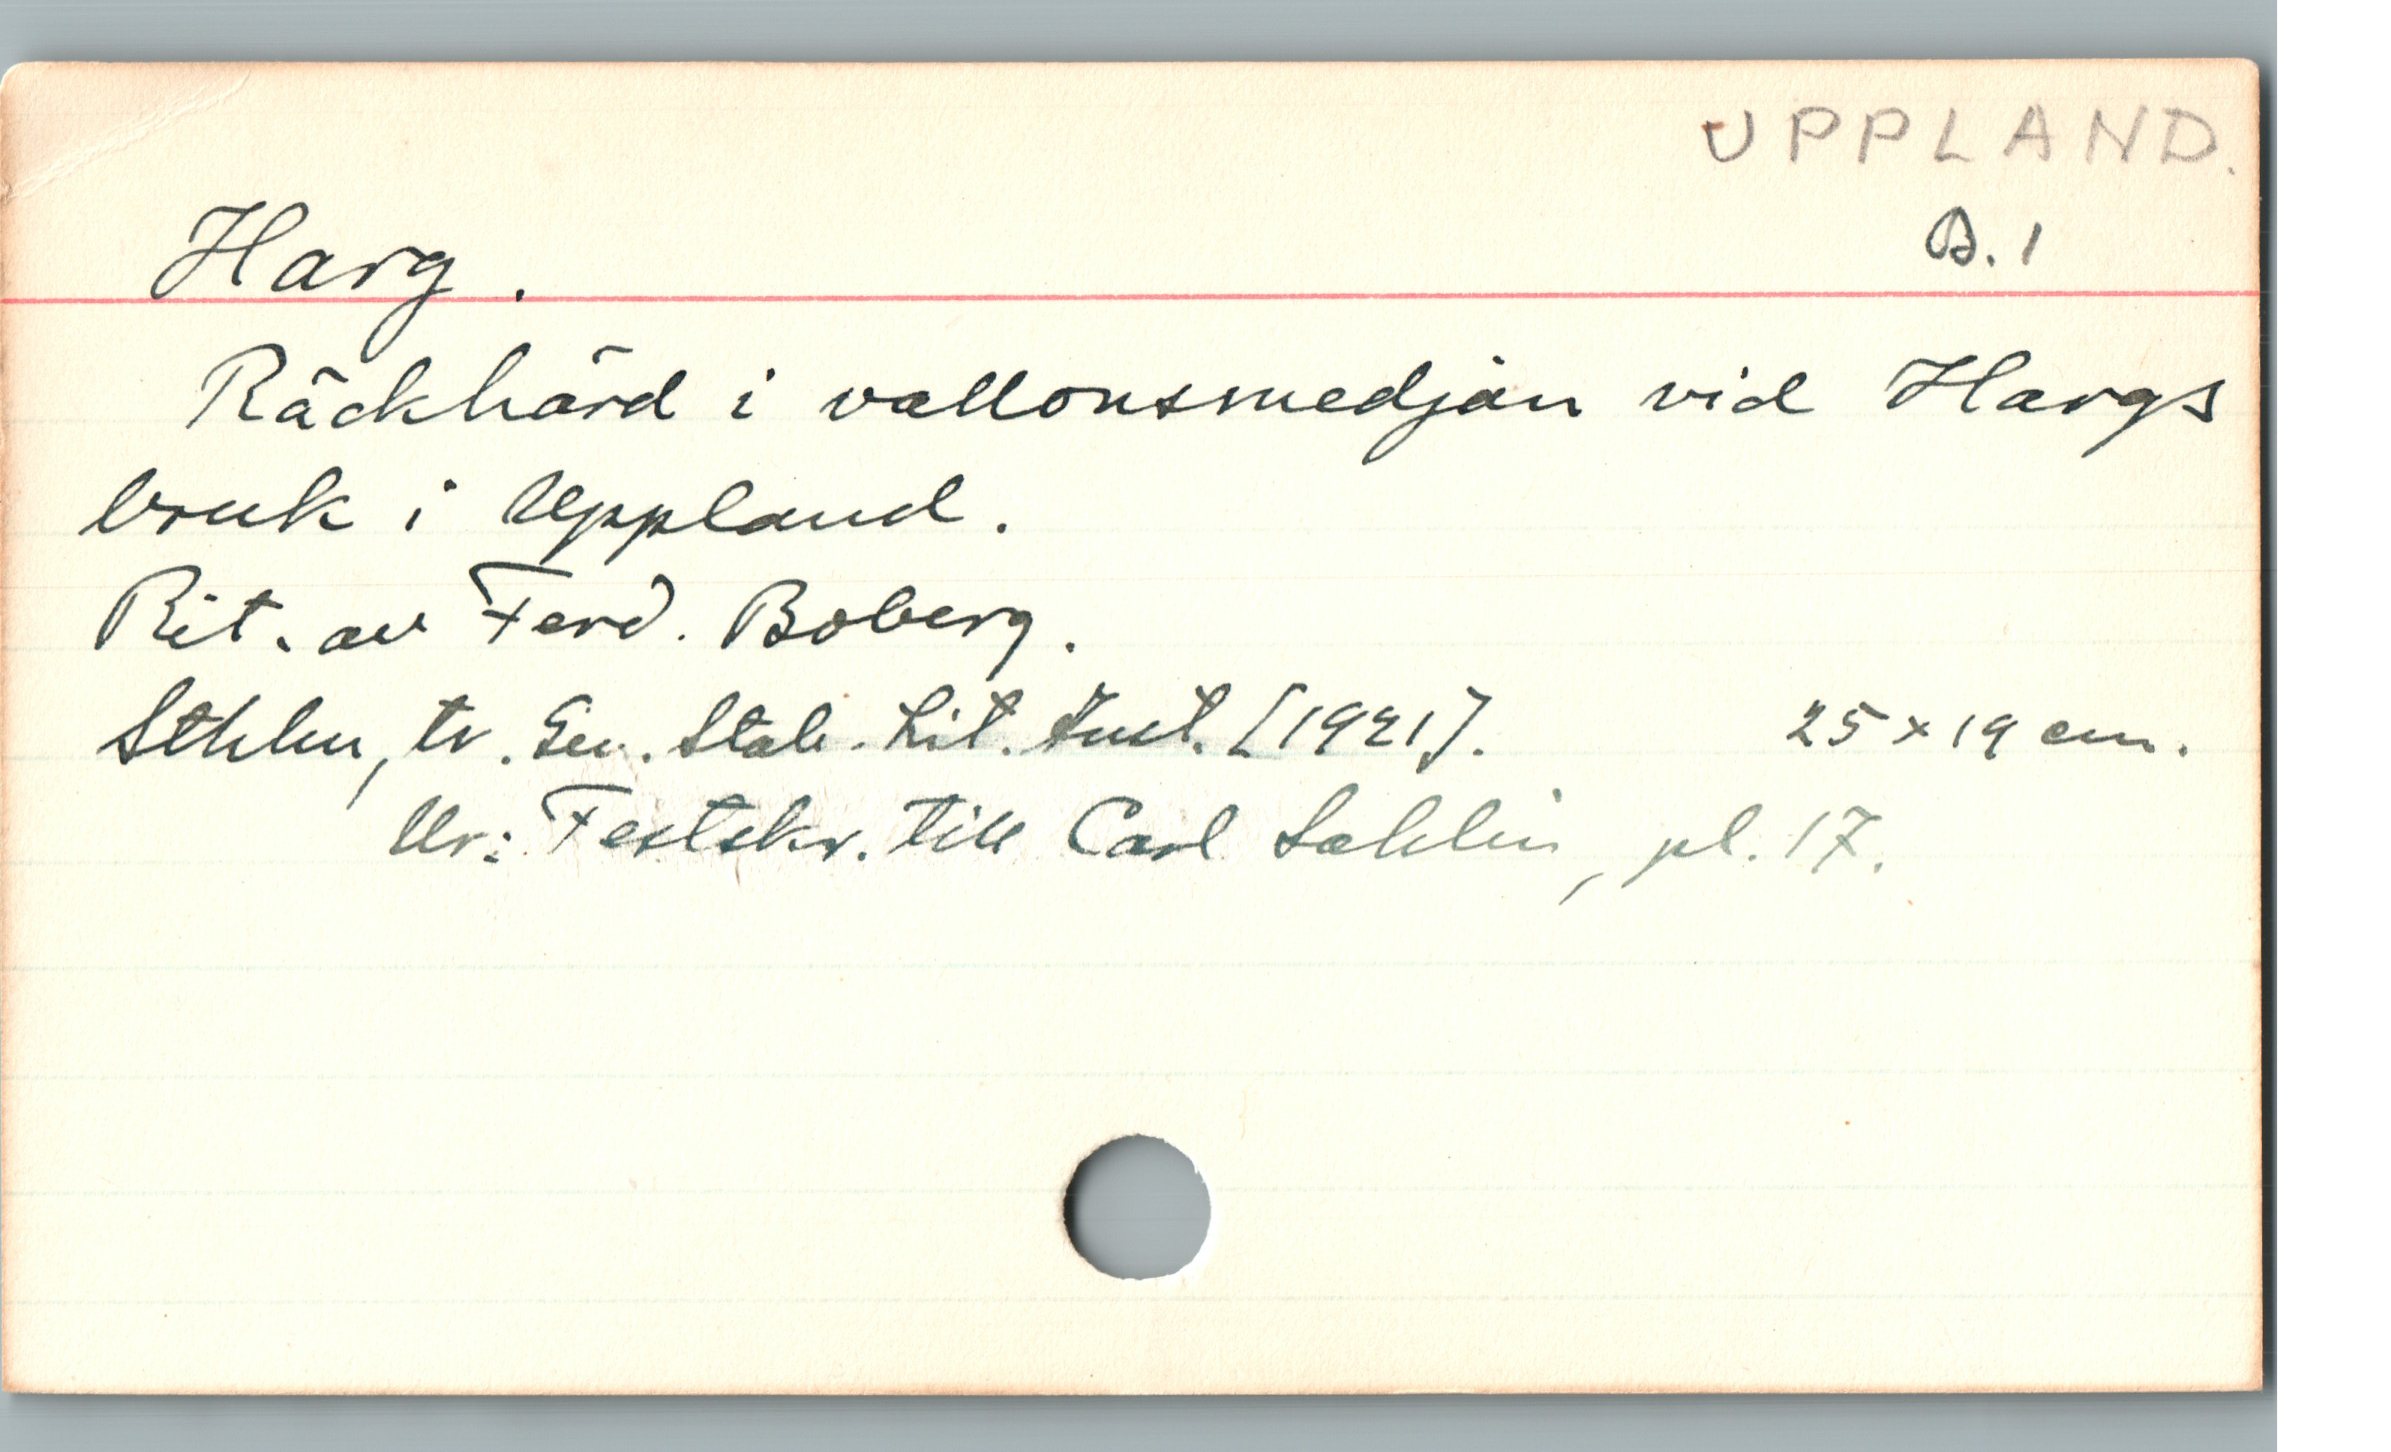 UPPLAND.
B. 1
Harg.
Räckhärd i vallonsmedjan vid Hargs
bruk i Uppland.
Rit. av Ferd. Boberg.
Sthlm, tr. Gen. Stab. Lit. Inst. [1921]. 25 x 19 cm.
Ur: Festskr. till Carl Sahlin, pl. 17.